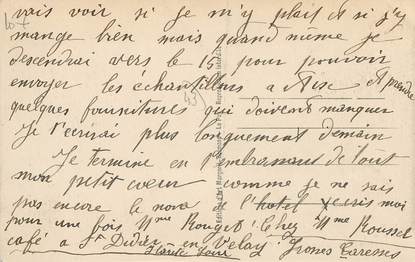 vais voir si je m'y plait & si j'y
mange bien mais quand même je
descendrai vers le 15 pour pouvoir
envoyer les échantillons a & prendre
quelques fournitures qui doivent manquer
Je t'ecrirai plus longuement demain
Je termine en t'embrassant de tout
mon petit coeur comme je ne sais
pas encore le nom de l'hotel ecris moi
pour une fois Mme Rouget Chez Mme Roussel
café a St Didier en Velay Haute Loire Caresses